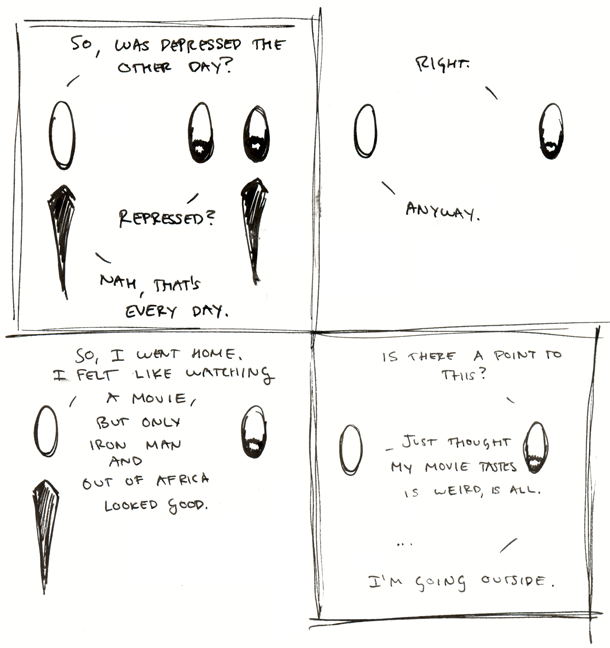 SO, WAS DEPRESSED THE
OTHER DAY?
REPRESSED?
NAH, THAT'S
EVERY DAY.
RIGHT.
ANYWAY.
SO, I WENT HOME.
I FELT LIKE WATCHING
A MOVIE,
BUT ONLY
IRON MAN
AND
OUT OF AFRICA
LOOKED GOOD.
IS THERE A POINT TO
THIS?
JUST THOUGHT
MY MOVIE TASTES
IS WEIRD, IS ALL.
...
I'M GOING OUTSIDE.